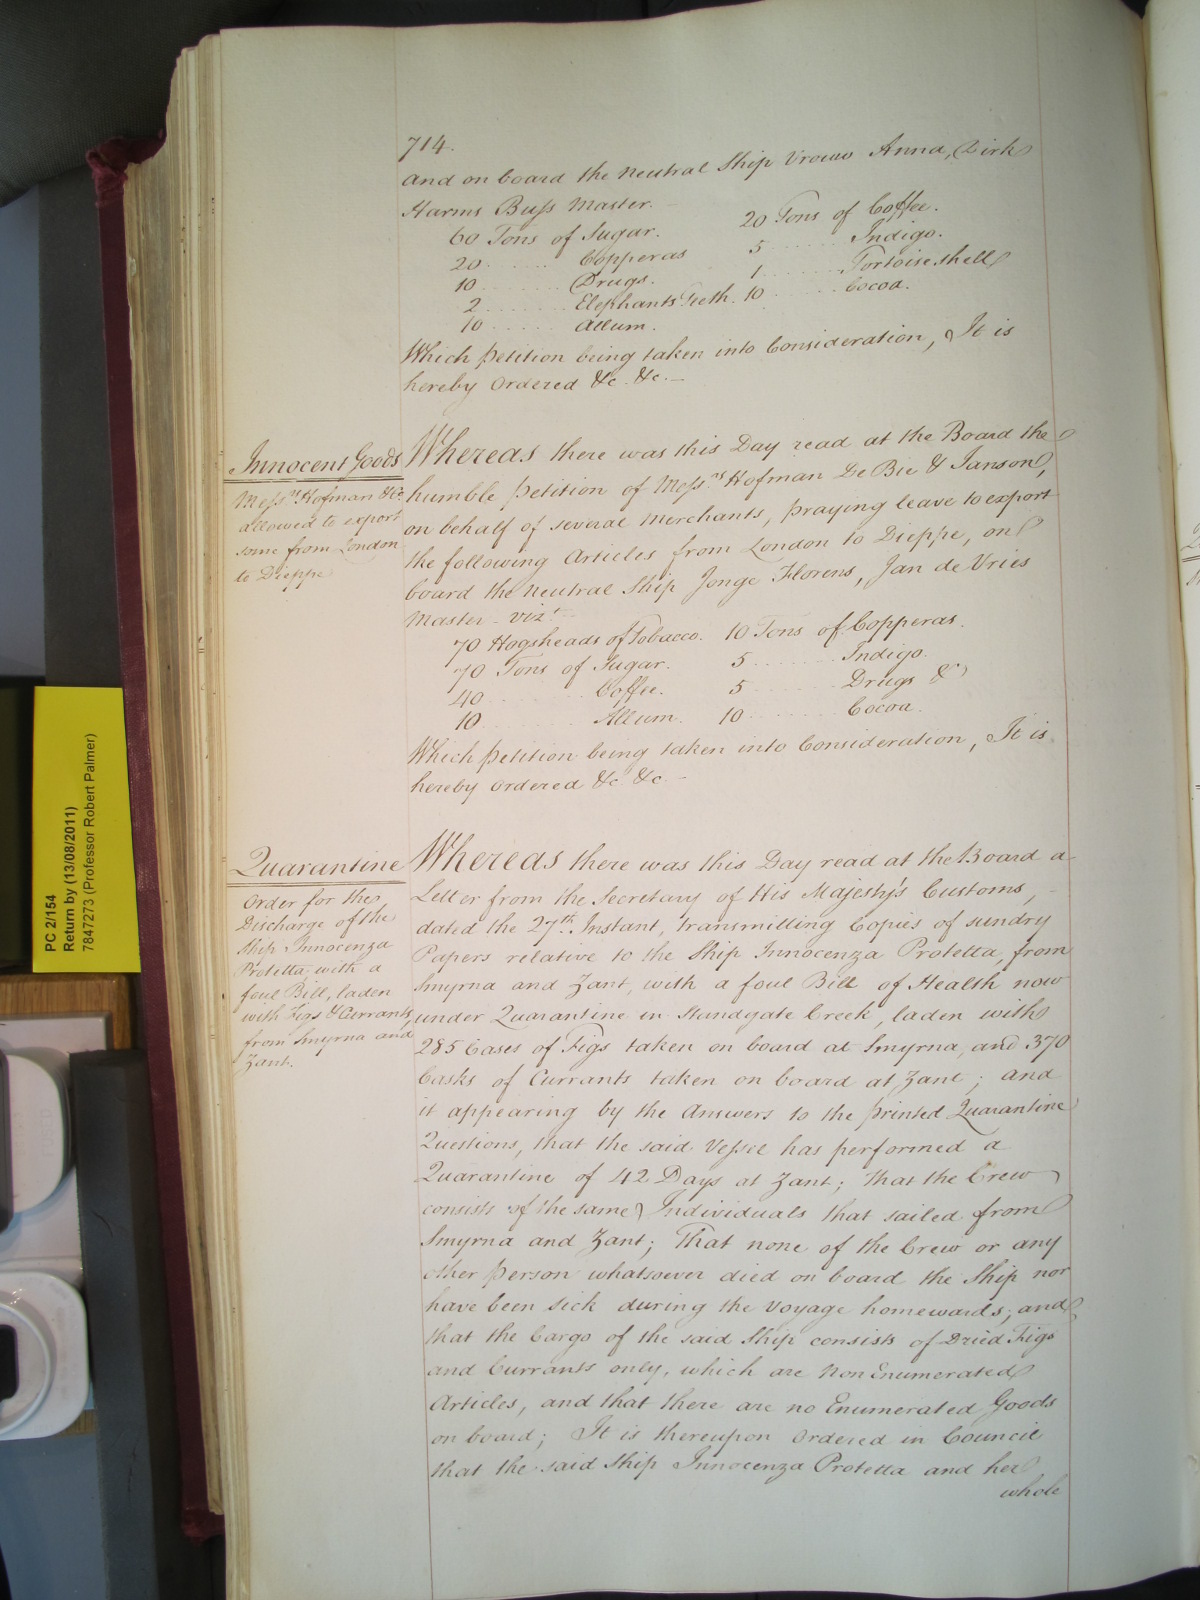 714.
and on board the Neutral Ship Vrouw Anna, Dirk
Harms Buss Master.
60 Tons of Sugar. 20 Tons of Coffee.
20 ...... Copperas 5 ...... Indigo.
10 ...... Drugs. 1 ...... Tortoiseshell
2 ...... Elephants Teeth. 10 ...... Cocoa.
10 ...... Allum.
Which Petition being taken into Consideration, It is
hereby Ordered &c. &c. —
Innocent Goods
Messrs. Hofman & Co.
allowed to export
some from London
to Dieppe
Whereas there was this Day read at the Board the
humble Petition of Messrs. Hofman De Bie & Janson,
on behalf of several Merchants, praying leave to export
the following Articles from London to Dieppe, on
board the Neutral Ship Jonge Florens, Jan de Vries
Master - vizt. —
70 Hogsheads of Tobacco. 10 Tons of Copperas.
70 Tons of Sugar. 5 ...... Indigo.
40 ...... Coffee. 5 ...... Drugs &
10 ...... Allum. 10 ...... Cocoa.
Which Petition being taken into Consideration, It is
hereby Ordered &c. &c. —
Quarantine
Order for the
Discharge of the
Ship Innocenza
Protetta, with a
foul Bill, laden
with Figs & Currants
from Smyrna and
Zant.
Whereas there was this Day read at the Board a
Letter from the Secretary of His Majesty's Customs, -
dated the 27th. Instant, transmitting Copies of sundry
Papers relative to the Ship Innocenza Protetta, from
Smyrna and Zant, with a foul Bill of Health now
under Quarantine in Standgate Creek, laden with
285 Cases of Figs taken on board at Smyrna, and 370
Casks of Currants taken on board at Zant; and
it appearing by the Answers to the printed Quarantine
Questions, that the said Vessel has performed a
Quarantine of 42 Days at Zant; that the Crew
consists of the same Individuals that sailed from
Smyrna and Zant; That none of the Crew or any
other Person whatsoever died on board the Ship nor
have been sick during the Voyage homewards; and
that the Cargo of the said Ship consists of Dried Figs
and Currants only, which are Non Enumerated
Articles, and that there are no Enumerated Goods
on board; It is thereupon Ordered in Council
that the said Ship Innocenza Protetta and her
whole
PC 2/154
Return by (13/08/2011)
7847273 (Professor Robert Palmer)